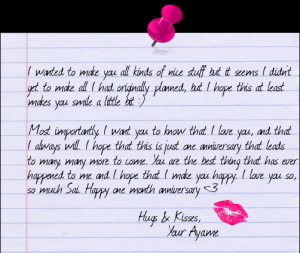 I wanted to make you all kinds of nice stuff but it seems I didn't
get to make all I had originally planned, but I hope this at least
makes you smile a little bit :)
Most importantly, I want you to know that I love you, and that
I always will. I hope that this is just one anniversary that leads
to many, many more to come. You are the best thing that has ever
happened to me and I hope that I make you happy. I love you so,
so much Sai. Happy one month anniversary <3
Hugs & Kisses,
Your Ayame